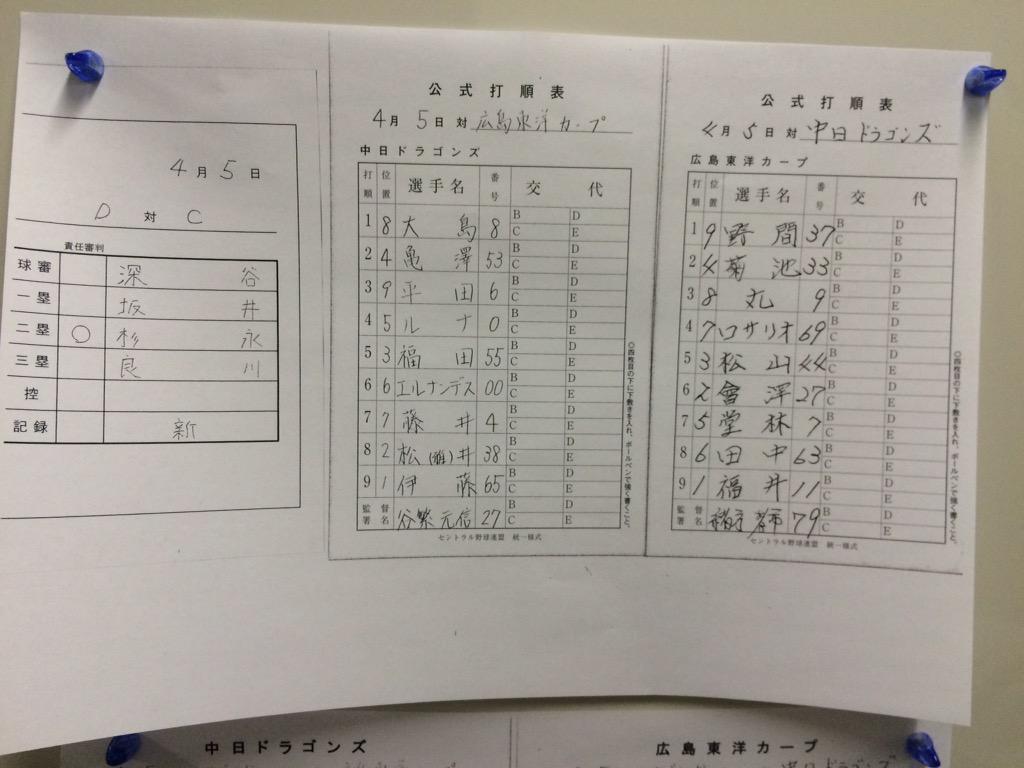 4月5日
D 対 C
責任審判
球審 深谷
一塁 坂井
二塁 ○ 杉永
三塁 良川
控
記録 新
公式打順表
4月5日対 広島東洋カープ
中日ドラゴンズ
打順 位置 選手名 番号 交代
1 8 大島 8 B C D E
2 4 亀澤 53 B C D E
3 9 平田 6 B C D E
4 5 ルナ 0 B C D E
5 3 福田 55 B C D E
6 6 エルナンデス 00 B C D E
7 7 藤井 4 B C D E
8 2 松(雅)井 38 B C D E
9 1 伊藤 65 B C D E
監督署名 谷繁元信 27 B C D E
セントラル野球連盟 統一様式
◎四枚目の下に下敷きを入れ、ボールペンで強く書くこと。
公式打順表
4月5日対 中日ドラゴンズ
広島東洋カープ
打順 位置 選手名 番号 交代
1 9 野間 37 B C D E
2 4 菊池 33 B C D E
3 8 丸 9 B C D E
4 7 ロサリオ 69 B C D E
5 3 松山 44 B C D E
6 2 會澤 27 B C D E
7 5 堂林 7 B C D E
8 6 田中 63 B C D E
9 1 福井 11 B C D E
監督署名 緒方孝市 79 B C D E
セントラル野球連盟 統一様式
◎四枚目の下に下敷きを入れ、ボールペンで強く書くこと。
中日ドラゴンズ
広島東洋カープ
中日ドラゴンズ